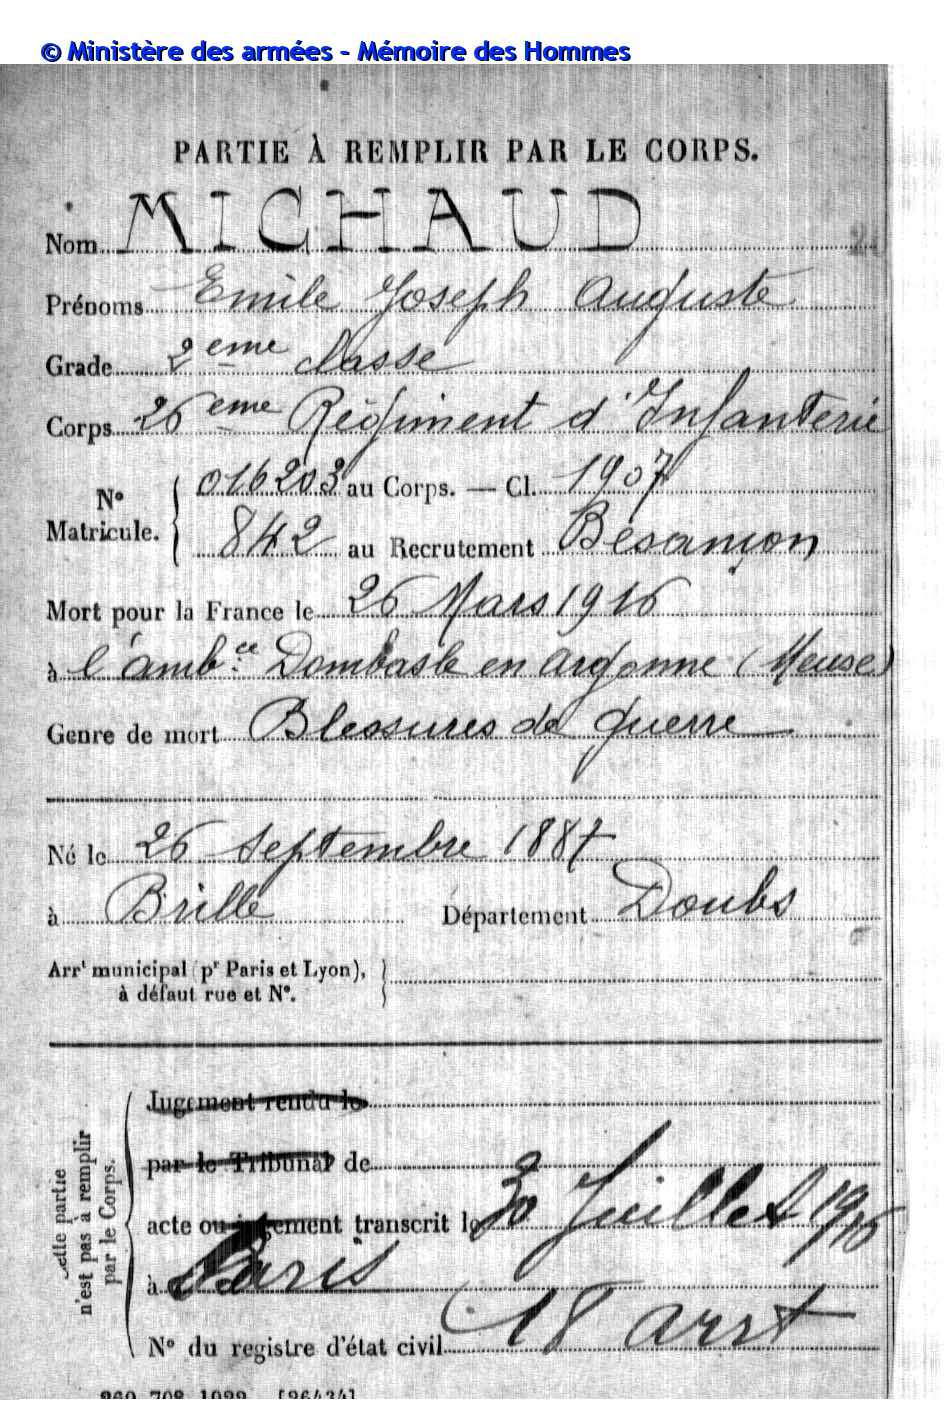 © Ministère des armées - Mémoire des Hommes
PARTIE À REMPLIR PAR LE CORPS.
Nom MICHAUD
Prénoms Emile Joseph Auguste
Grade 2 eme classe
Corps 26 eme Régiment d'Infanterie
N° Matricule. 016203 au Corps. — Cl. 1907
842 au Recrutement Besançon
Mort pour la France le 26 Mars 1916
à l'amb.ce Dombasle en argonne (Meuse)
Genre de mort Blessures de guerre
Né le 26 Septembre 1887
à Brille Département Doubs
Arrt municipal (pr Paris et Lyon),
à défaut rue et N°.
Cette partie
n'est pas à remplir
par le Corps.
Jugement rendu le
par le Tribunal de
acte ou jugement transcrit le 30 Juillet 1916
à Paris
N° du registre d'état civil 18 arrt
[26434]